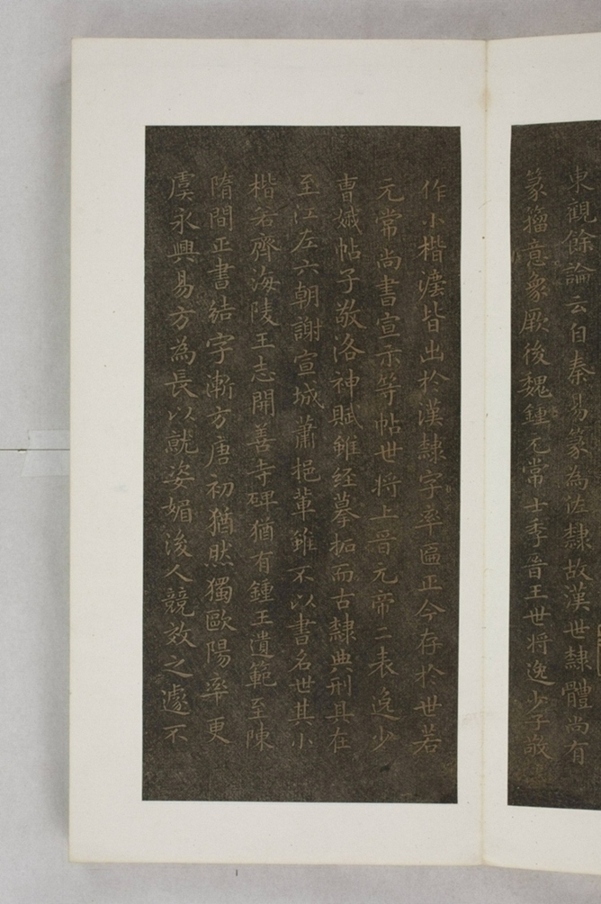 東觀餘論云自秦易篆為佐隸故漢世隸體尚有
篆籀意象厥後魏鍾元常士季晉王世將逸少子敬
作小楷灋皆出於漢隸字率匾正今存於世若
元常尚書宣示等帖世將上晉元帝二表逸少
曹娥帖子敬洛神賦雖經摹拓而古隸典刑具在
至江左六朝謝宣城蕭挹輩雖不以書名世其小
楷若齊海陵王志開善寺碑猶有鍾王遺範至陳
隋間正書結字漸方唐初猶然獨歐陽率更
虞永興易方為長以就姿媚後人競效之遽不